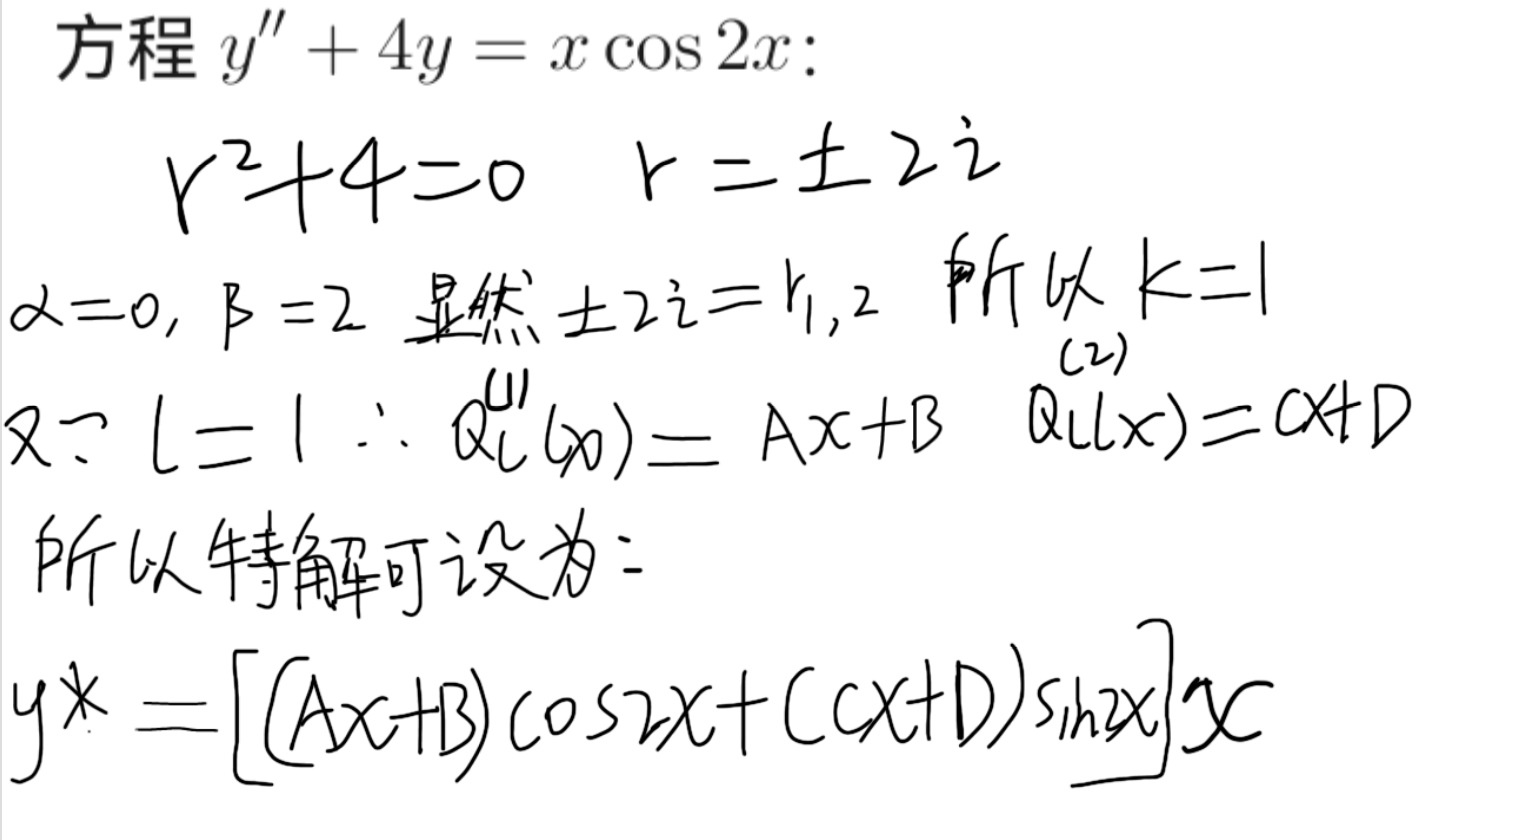 方程 y'' + 4y = x cos 2x:
r²+4=0 r=±2i
α=0, β=2 显然 ±2i=r₁,₂ 所以 k=1
又∵ l=1 ∴ Qₗ⁽¹⁾(x)=Ax+B Qₗ⁽²⁾(x)=Cx+D
所以特解可设为:
y*=[(Ax+B)cos2x+(Cx+D)sin2x]x